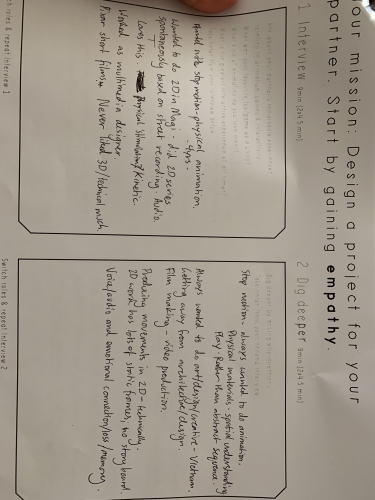 our mission: Design a project for your
partner. Start by gaining empathy
1 Interview 8min (2x4 min)
stop motion - physical animation
- 4yrs.
Wanted to do 2D in Magi - did 2D series
spontaneously based on street recording. Audio.
Loves this. Physical Stimulating/Kinetic.
Worked as multimedia designer
Pixar short films. Never liked 3D/technical much
Switch roles & repeat Interview 1
2 Dig deeper 8min (2x4 min)
Stop motion - always wanted to do animation.
Physical materials - spatial understanding
Play - Rather than abstract sequence.
Always wanted to do art/design/creative - Vietnam.
Getting away from architecture/design.
Film making - video production.
Producing movements in 2D - technically.
2D work has lots of static frames, no story board
Voice/audio and emotional connection/loss/memory.
Switch roles & repeat Interview 2